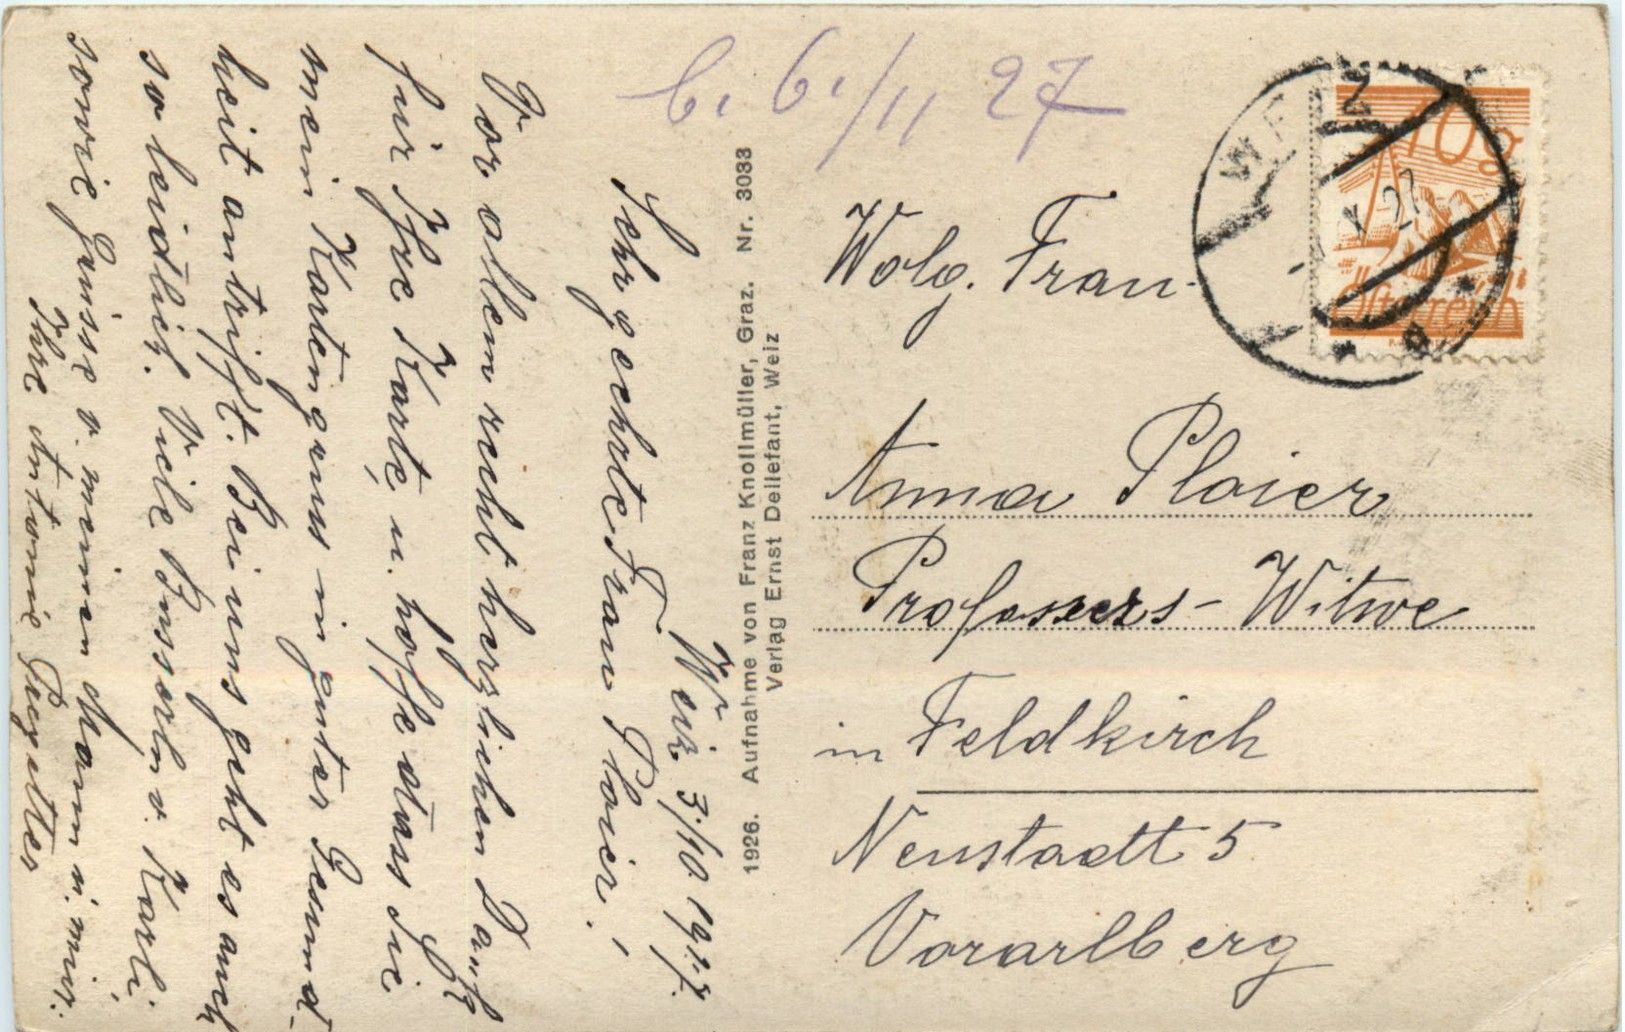 Weiz 3./10. 1927.
Sehrgeehrte Frau Ploier!
Vor allem recht herzlichen Dank
für Ihre Karte, u. hoffe dass Sie
mein Kartengruss in guter Gesund-
heit antrifft. Bei uns geht es auch
so leidlich. Viele Busserln v. Karli
sowie Grüsse v. meinen Mann u. mir.
Ihre Antonie
1926. Aufnahme von Franz Knollmüller, Graz. Nr. 3033
Verlag Ernst Dellefant, Weiz
b. 6./11 27
WEIZ
X. 27
10g
Österreich
Wolg. Frau
Anna Ploier
Professors-Witwe
in Feldkirch
Neustadt 5
Vorarlberg